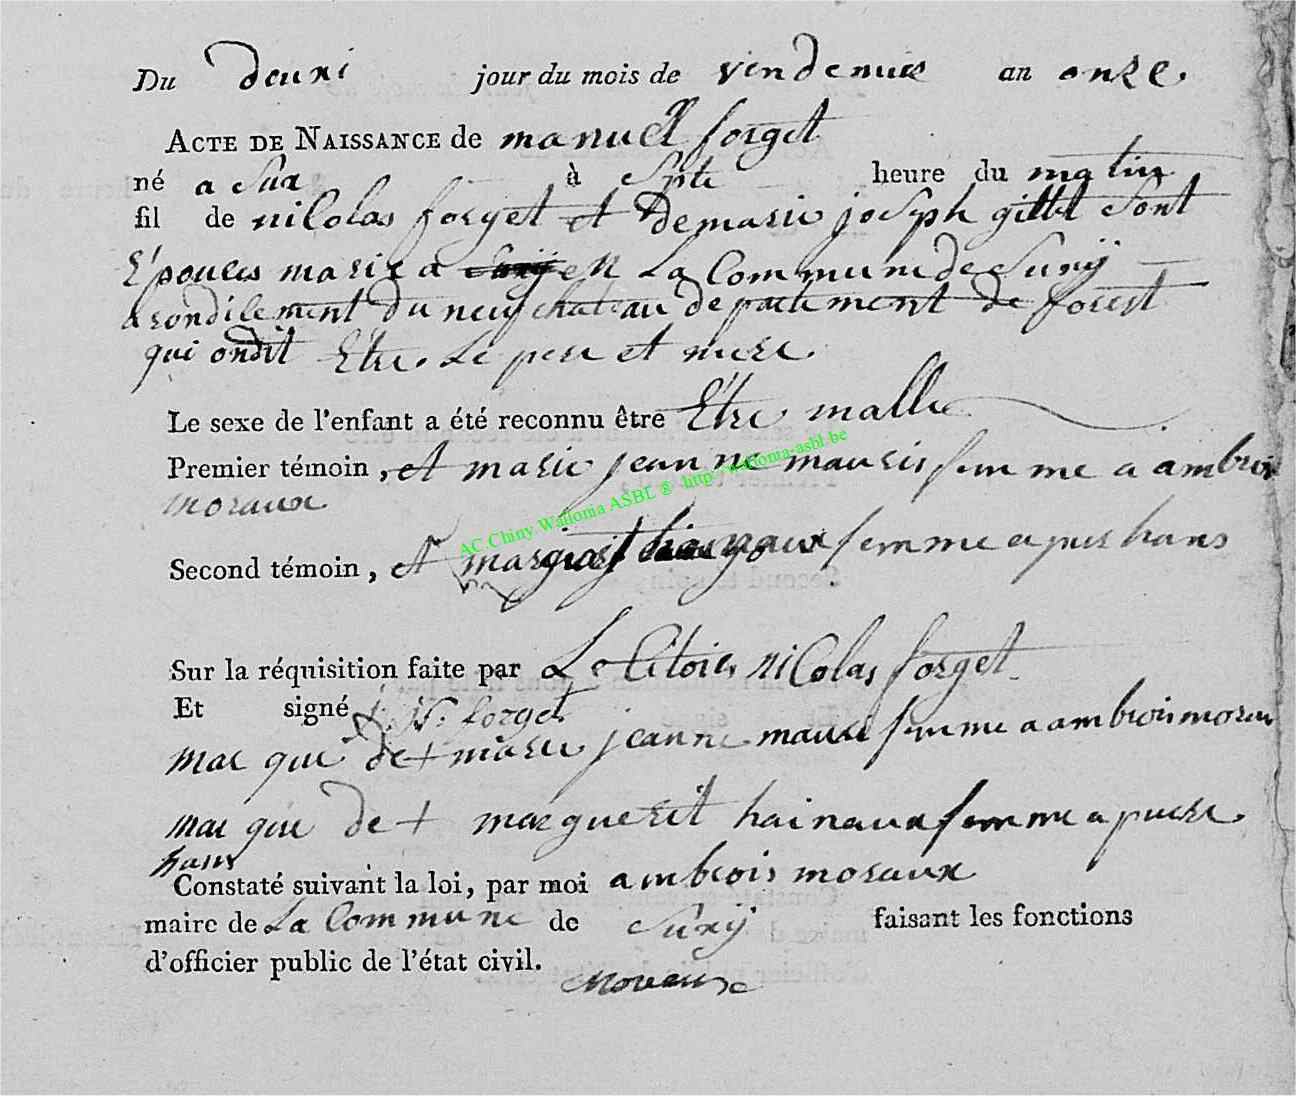 Du deuxi jour du mois de vendemiere an onze.
ACTE DE NAISSANCE de manuell forget
né a Sux à Septe heure du matin
fil de nicolas forget et De marie joseph gillet Sont
Epouces marie a en La Commune de Suxÿ
arondicement Du neufchateau departement de forest
qui ondit Etre. Le pere et mere.
Le sexe de l'enfant a été reconnu être Etre malle
Premier témoin, et marie jeanne mauris femme a ambrois
moraux
AC.Chiny Wallonia ASBL ® http://wallonia-asbl.be
Second témoin, et hainaux femme a pier hans
Sur la réquisition faite par Le Citoien nicolas forget
Et signé N. forget
mar que de + marie jeanne mauris femme a ambrois moraux
mar que de + marguerit hainaux femme a pierre
hans
Constaté suivant la loi, par moi ambrois moraux
maire de La Commune de Suxÿ faisant les fonctions
d'officier public de l'état civil.
Moreaux